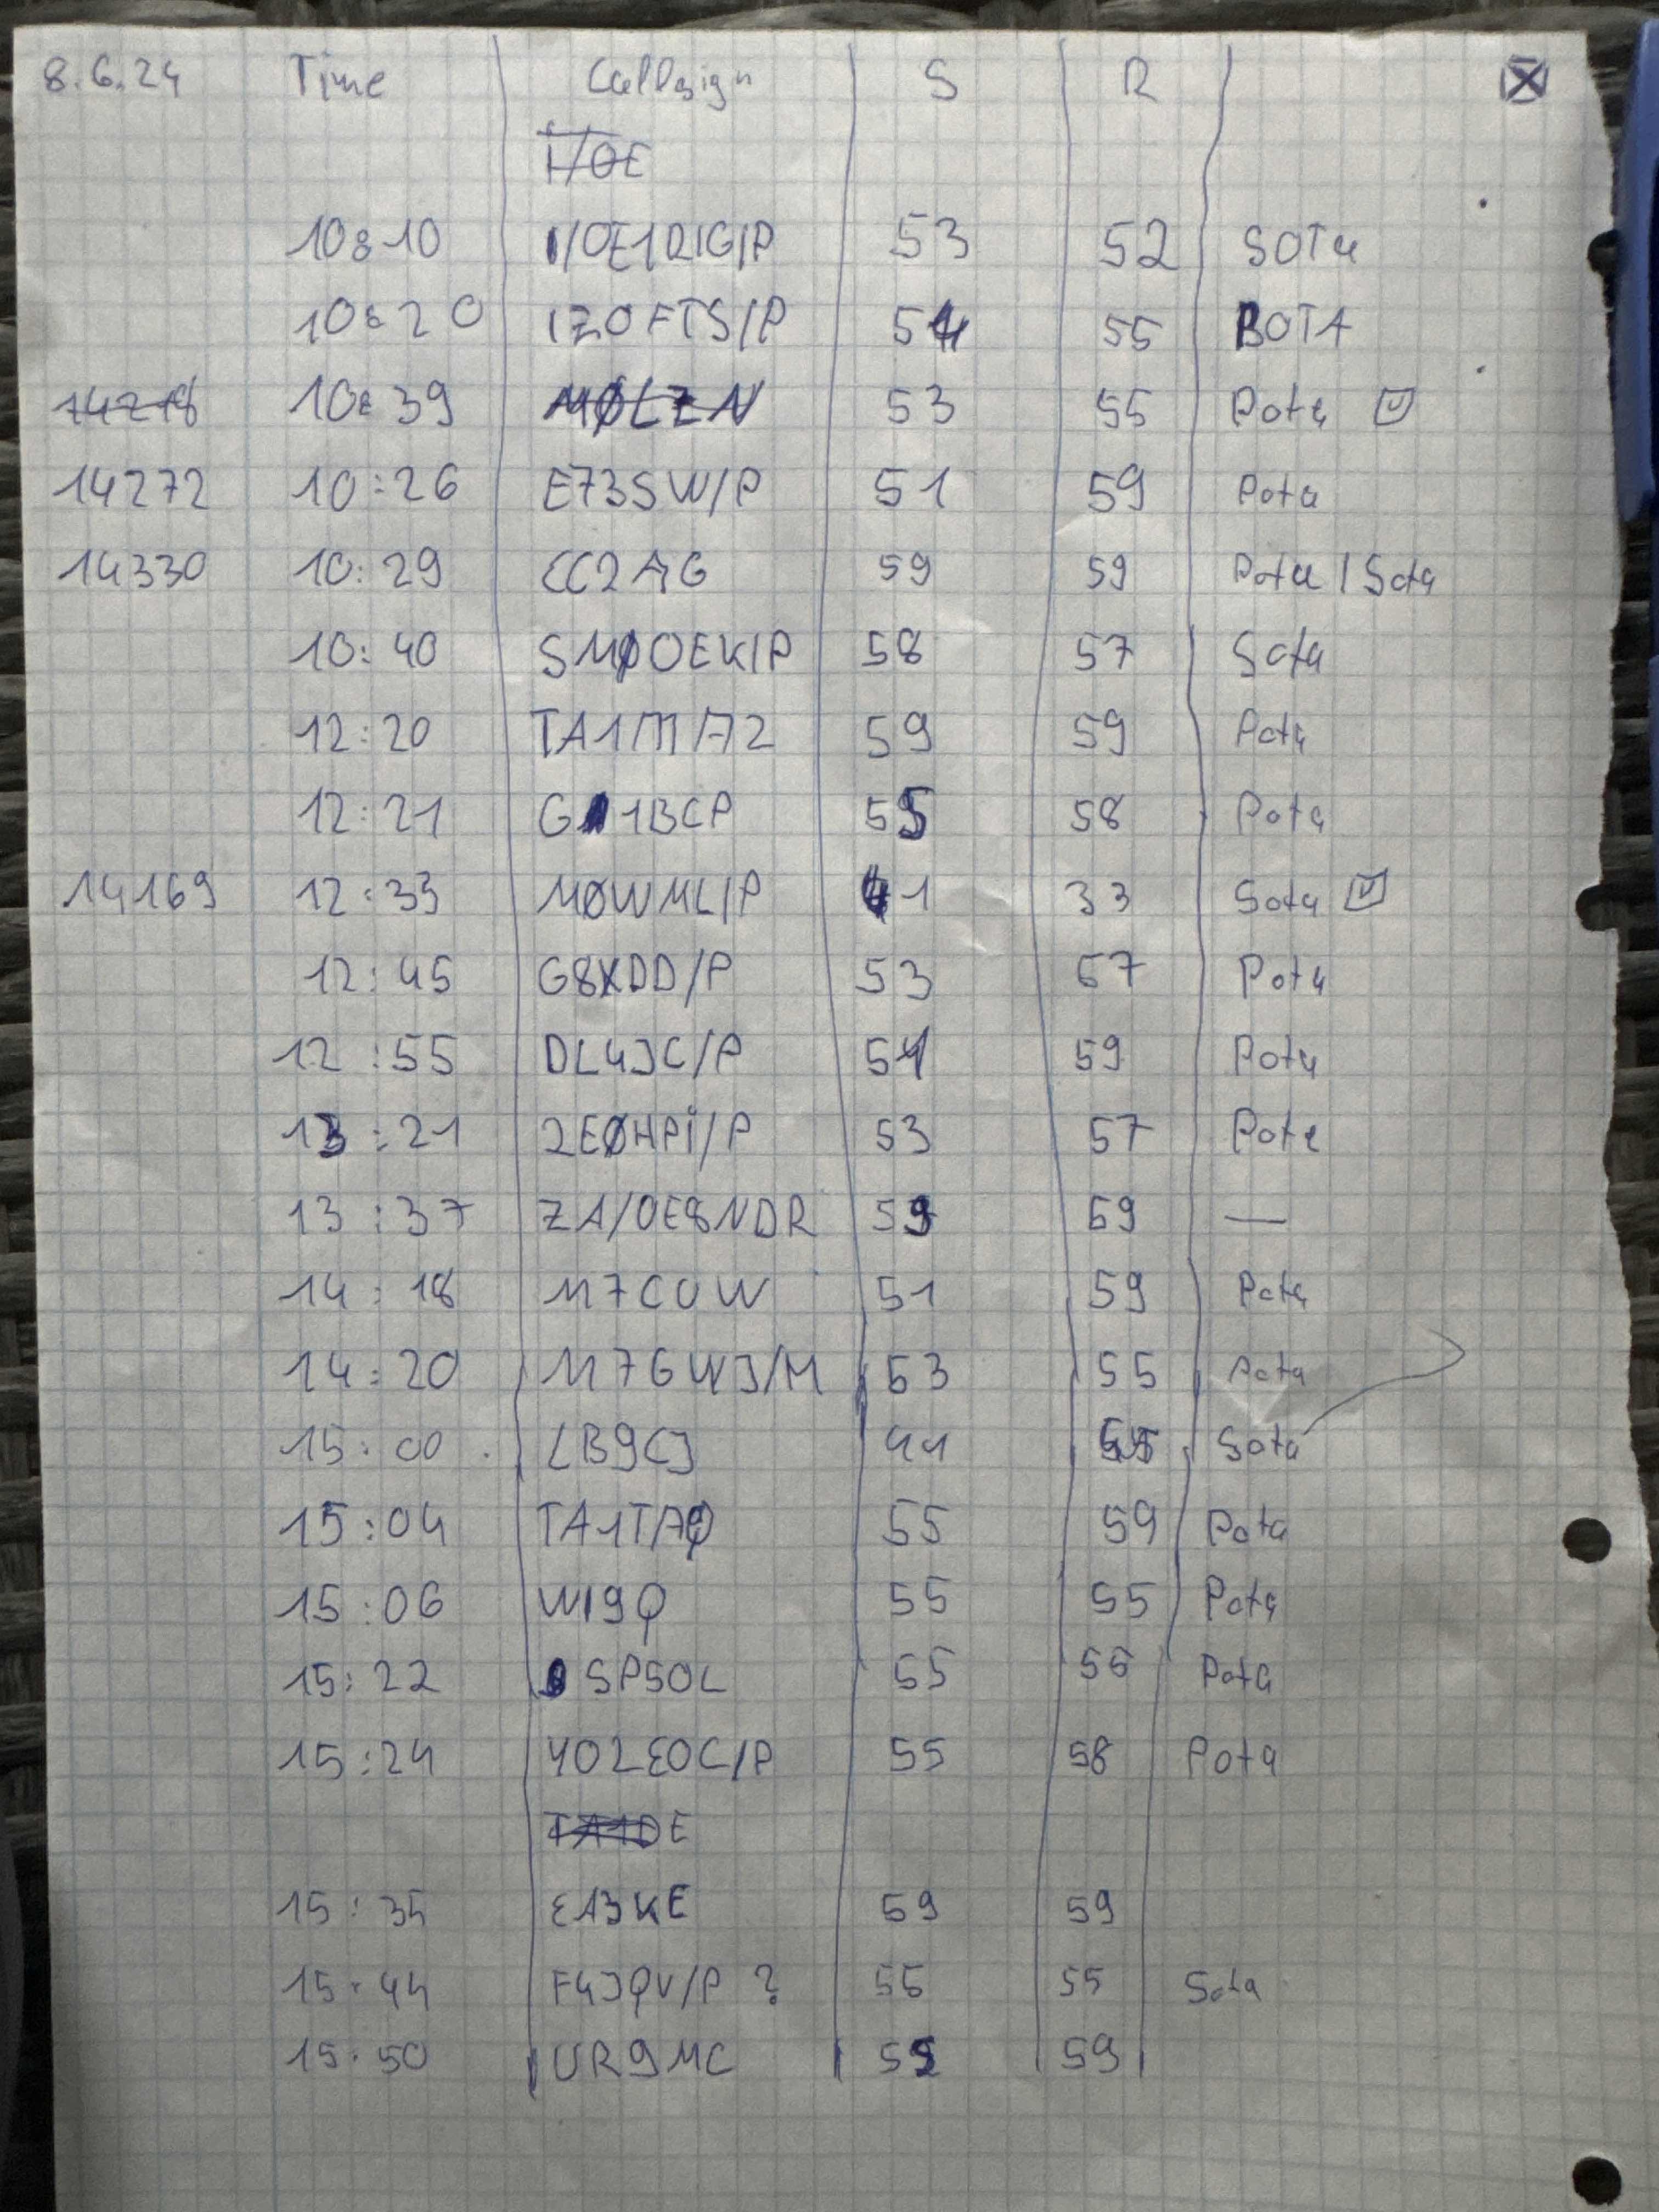 8.6.24 Time Callsign S R
I/OE
10:10 I/OE1RIG/P 53 52 SOTa
10:20 IZ0FTS/P 54 55 BOTA
14278 10:39 MØLZN 53 55 Pota
14272 10:26 E73SW/P 51 59 Pota
14330 10:29 59 59 Pota/Sota
10:40 SMØOEK/P 58 57 Sota
12:20 TA1M/72 59 59 Pota
12:21 G1BCP 55 58 Pota
14169 12:33 MØWML/P 41 33 Sota
12:45 G8XDD/P 53 57 Pota
12:55 DL4JC/P 54 59 Pota
13:21 2EØHPi/P 53 57 Pota
13:37 ZA/OE8NDR 59 59 —
14:18 M7COW 51 59 Pota
14:20 M7GWJ/M 53 55 Pota
15:00 LB9CJ 44 Sota
15:04 55 59 Pota
15:06 WI9Q 55 55 Pota
15:22 SP5OL 55 55 Pota
15:24 YO2EOC/P 55 58 Pota
TA1DE
15:35 EA3KE 59 59
15:44 F4JQV/P ? 55 55 Sota
15:50 UR9MC 59